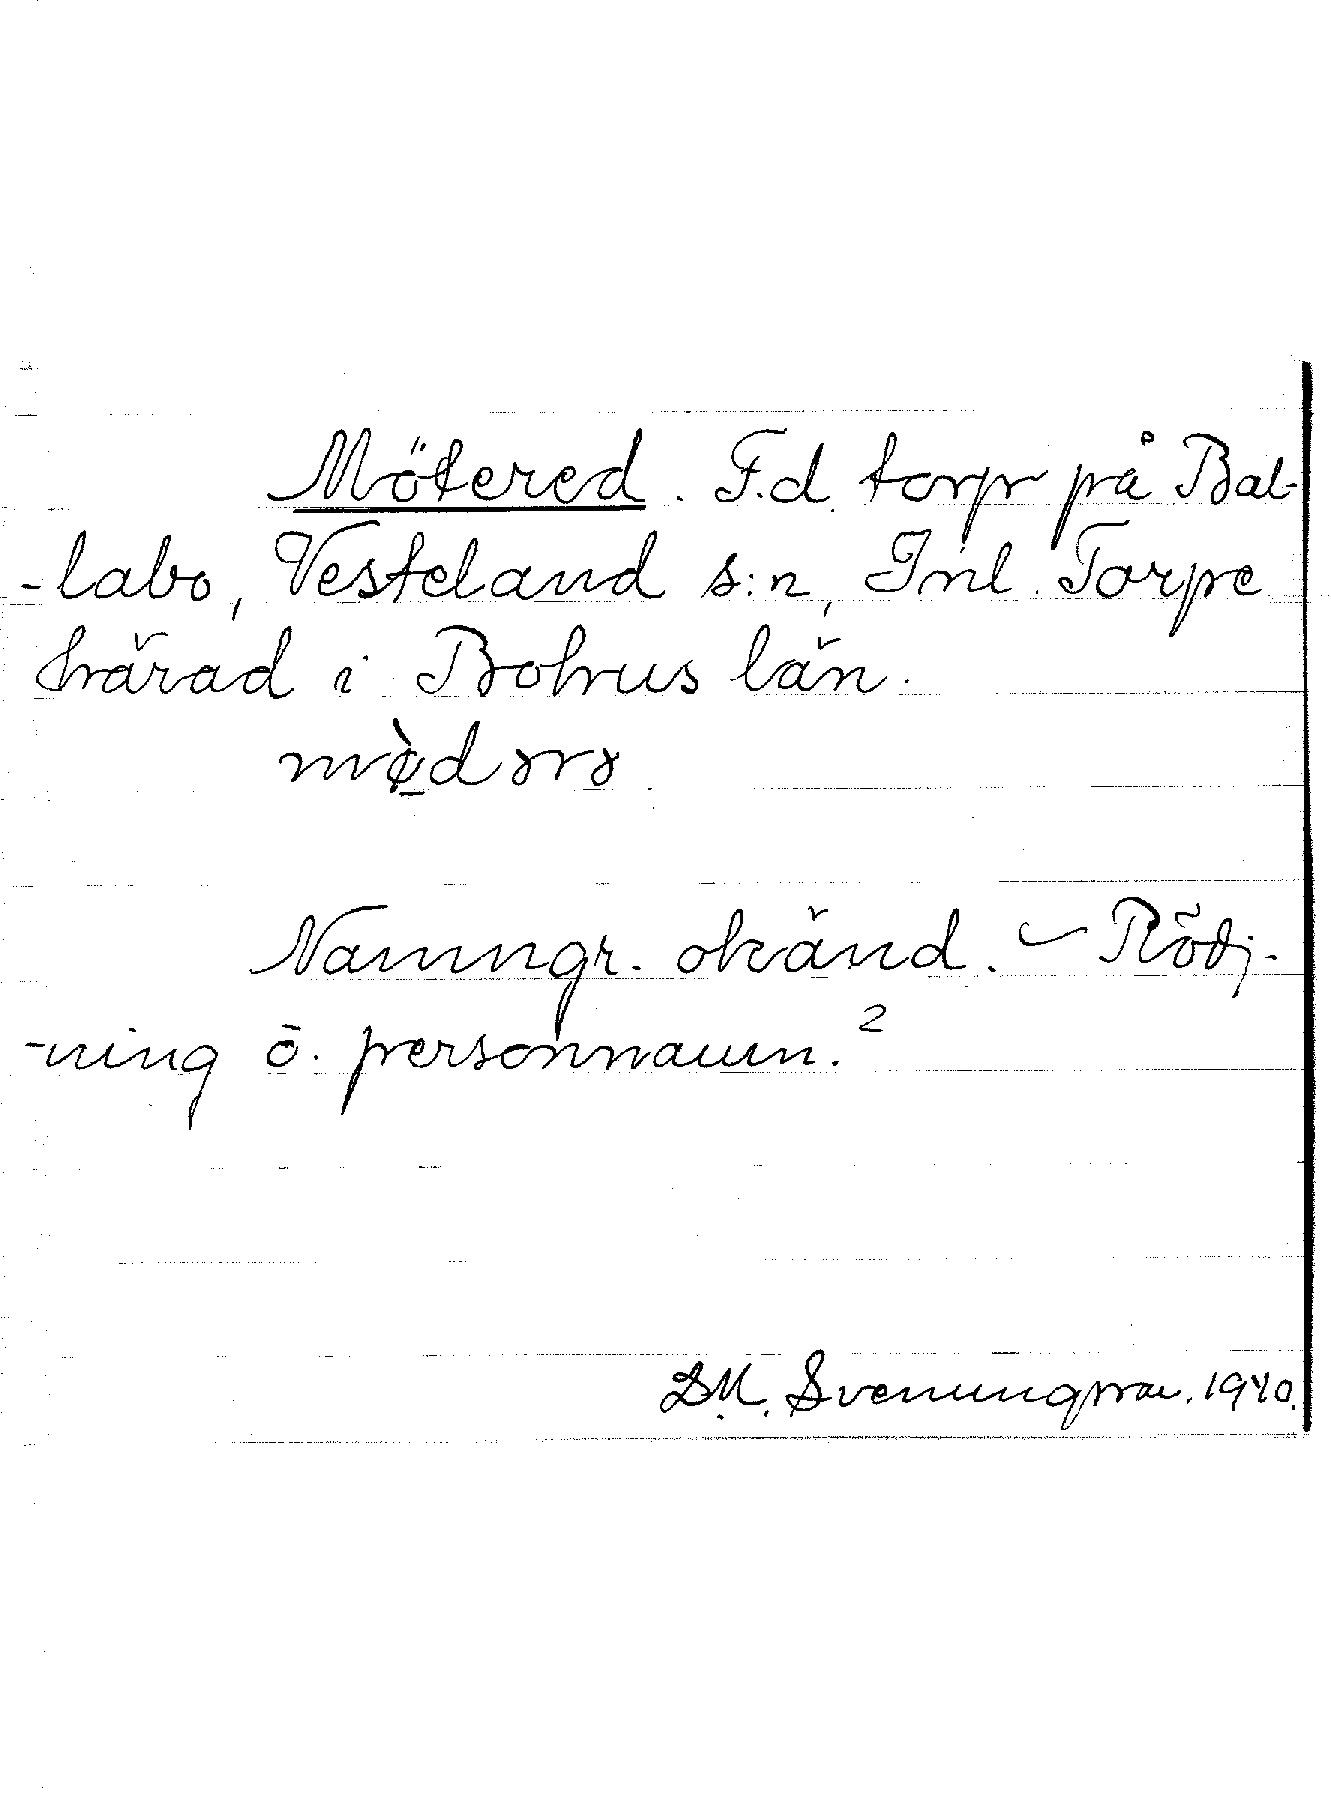 Mötered. F.d. torp på Bal-
-labo, Vesteland s:n, Inl. Torpe
härad i Bohus län.
Namngr. okänd. – Rödj-
-ning o. personnamn.?
D.M. Svenungsson. 1940.